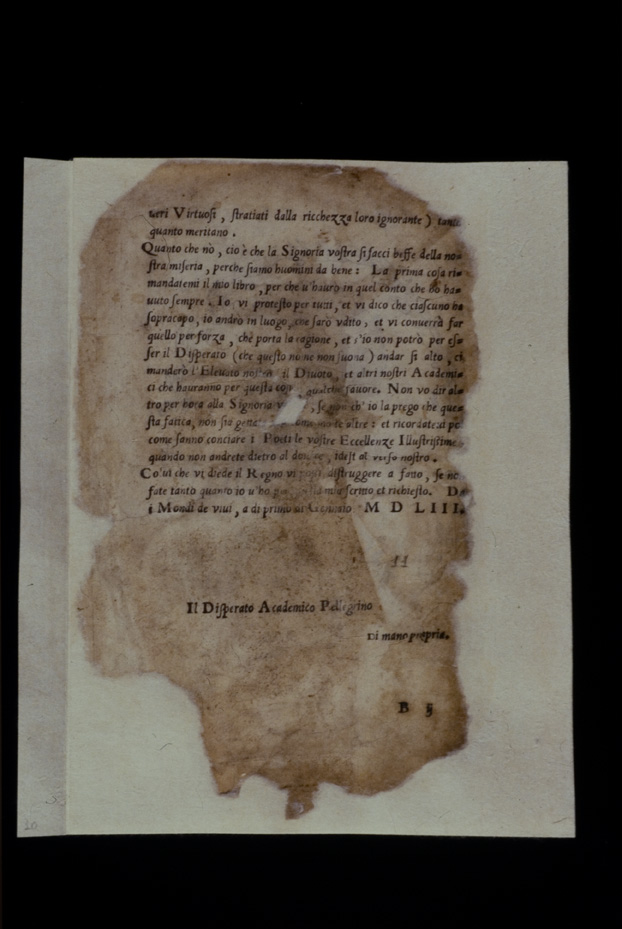 ueri Virtuosi, stratiati dalla ricchezza loro ignorante) tanto
quanto meritano.
Quanto che nò, cio è che la Signoria vostra si facci beffe della no=
stra miseria, perche siamo huomini da bene: La prima cosa ri=
mandatemi il mio libro, per che u'haurò in quel conto che hò ha=
uuto sempre. Io vi protesto per tutti, et vi dico che ciascuno ha
sopracapo, io andrò in luogo, che sarò vdito, et vi conuerrà far
quello per forza, che porta la ragione, et s'io non potrò per es=
ser il Disperato (che questo nome non suona) andar si alto, ci
manderò l'Eleuato nostro il Diuoto, et altri nostri Academi=
ci che hauranno per questa qualche fauore. Non vo dir al=
tro per hora alla Signoria ch'io la prego che que=
sta fatica, non sia altre: et ricordatesi
come sanno conciare i Poeti le vostre Eccellenze Illustrissime
quando non andrete dietro al idest al verso nostro.
Colui che vi diede il Regno vi possi distruggere a fatto, se no
fate tanto quanto io u'ho scritto et richiesto. Da
i Mondi de viui, a di primo di Gennaio M D LIII.
11
Il Disperato Academico Pellegrino
Di mano propria.
B ij
20